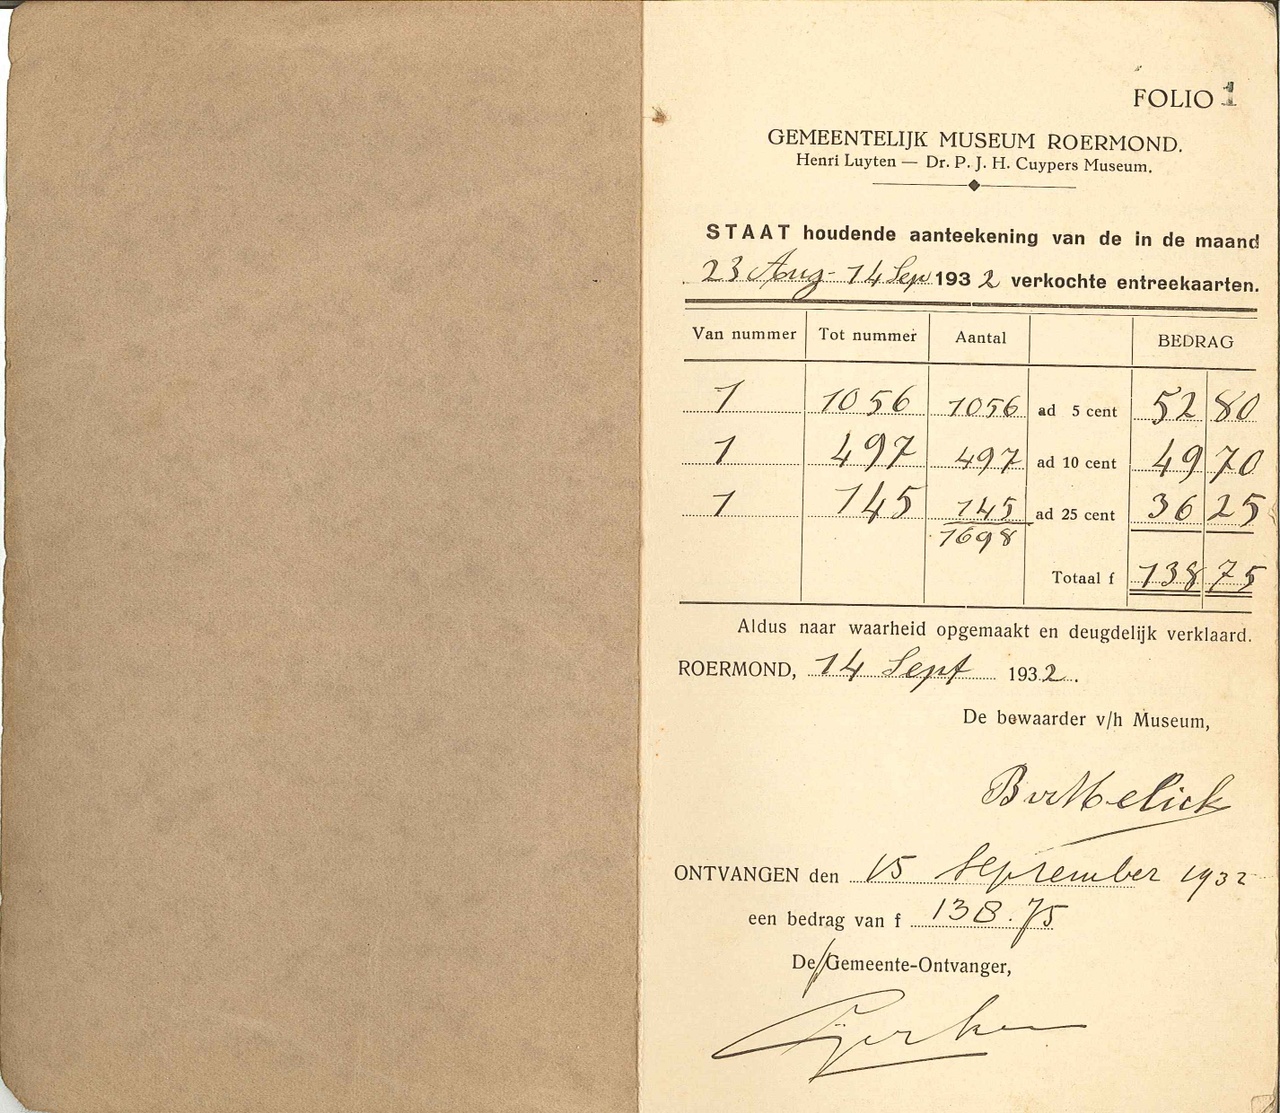 FOLIO 1
GEMEENTELIJK MUSEUM ROERMOND.
Henri Luyten — Dr. P. J. H. Cuypers Museum.
STAAT houdende aanteekening van de in de maand
23 Aug - 14 Sep 1932 verkochte entreekaarten.
Van nummer Tot nummer Aantal BEDRAG
1 1056 1056 ad 5 cent 52 80
1 497 497 ad 10 cent 49 70
1 145 145 ad 25 cent 36 25
1698
Totaal f 138 75
Aldus naar waarheid opgemaakt en deugdelijk verklaard.
ROERMOND, 14 Sept 1932.
De bewaarder v/h Museum,
B v Melick
ONTVANGEN den 15 September 1932
een bedrag van f 138.75
De/Gemeente-Ontvanger,